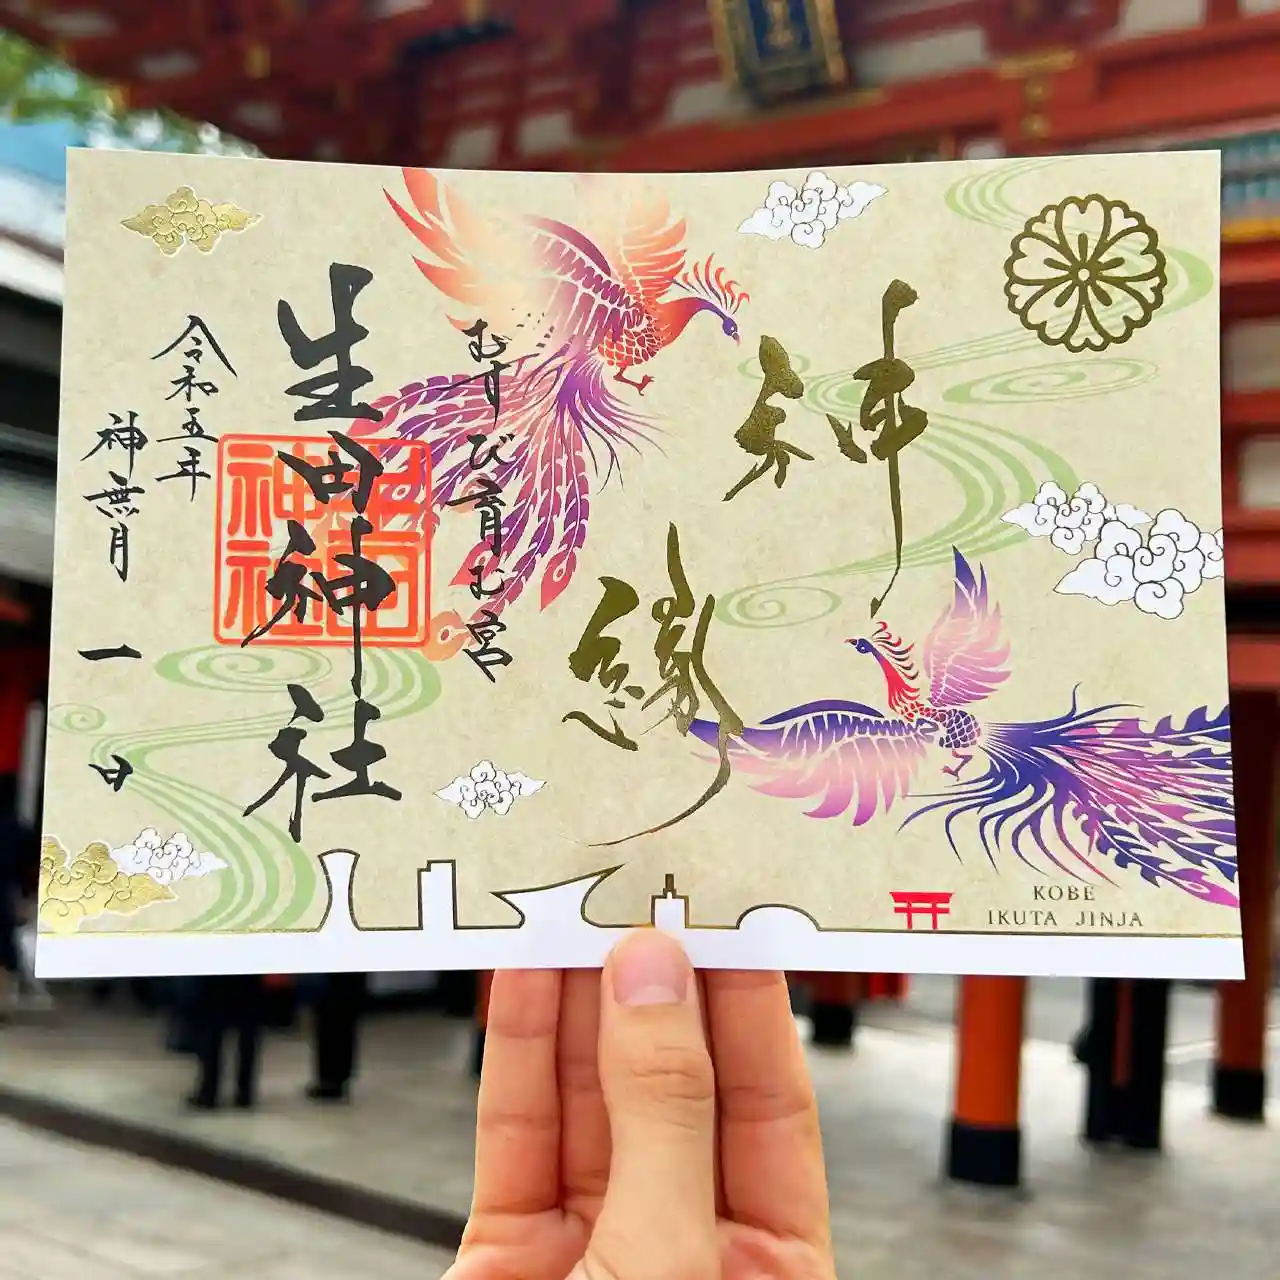 神縁
むすび育む宮
生田神社
令和五年
神無月
一日
生田神社
KOBE
IKUTA JINJA